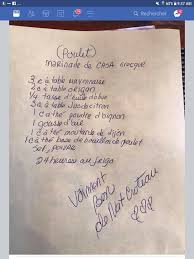 Rechercher
(Poulet)
marinade de CASA Grecque
3 c à table mayonnaise
2 c à table origan
1/4 tasse d'huile d'olive
3 c à table jus de citron
1 c à thé poudre d'oignon
1 gousse d'ail
1 c à thé moutarde de dijon
1 c à thé base de bouillon de poulet
Sel, poivre
24 heures au frigo
Vraiment
Bon